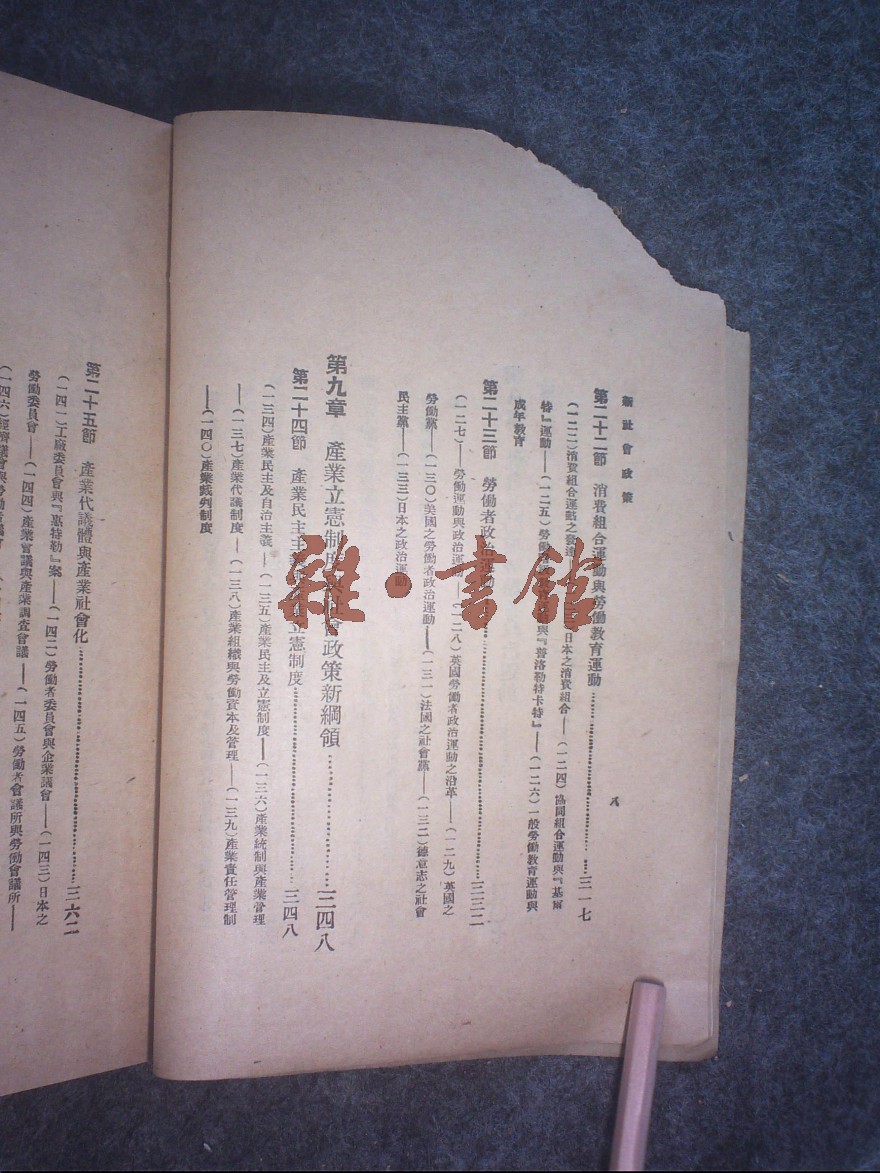 新社會政策
八
第二十二節 消費組合運動與勞働教育運動……三一七
(一二二)消費組合運動之發達 日本之消費組合——(一二四)協同組合運動與『基爾
特』運動——(一二五)勞働 與『普洛勒特卡特』——(一二六)一般勞働教育運動與
成年教育
第二十三節 勞働者政治運動……三三二
(一二七)——勞働運動與政治運動——(一二八)英國勞働者政治運動之沿革——(一二九)英國之
勞働黨——(一三〇)美國之勞働者政治運動——(一三一)法國之社會黨——(一三二)德意志之社會
民主黨——(一三三)日本之政治運動
第九章 產業立憲制度與社會政策新綱領……三四八
第二十四節 產業民主 立憲制度……三四八
(一三四)產業民主及自治主義——(一三五)產業民主及立憲制度——(一三六)產業統制與產業管理
——(一三七)產業代議制度——(一三八)產業組織與勞働資本及管理——(一三九)產業責任管理制
——(一四〇)產業裁判制度
第二十五節 產業代議體與產業社會化……三六二
(一四一)工廠委員會與『基特勒』案——(一四二)勞働者委員會與企業議會——(一四三)日本之
勞働委員會——(一四四)產業會議與產業調查會議——(一四五)勞働者會議所與勞働會議所——
(一四六)經濟議會與勞働
雜·書館